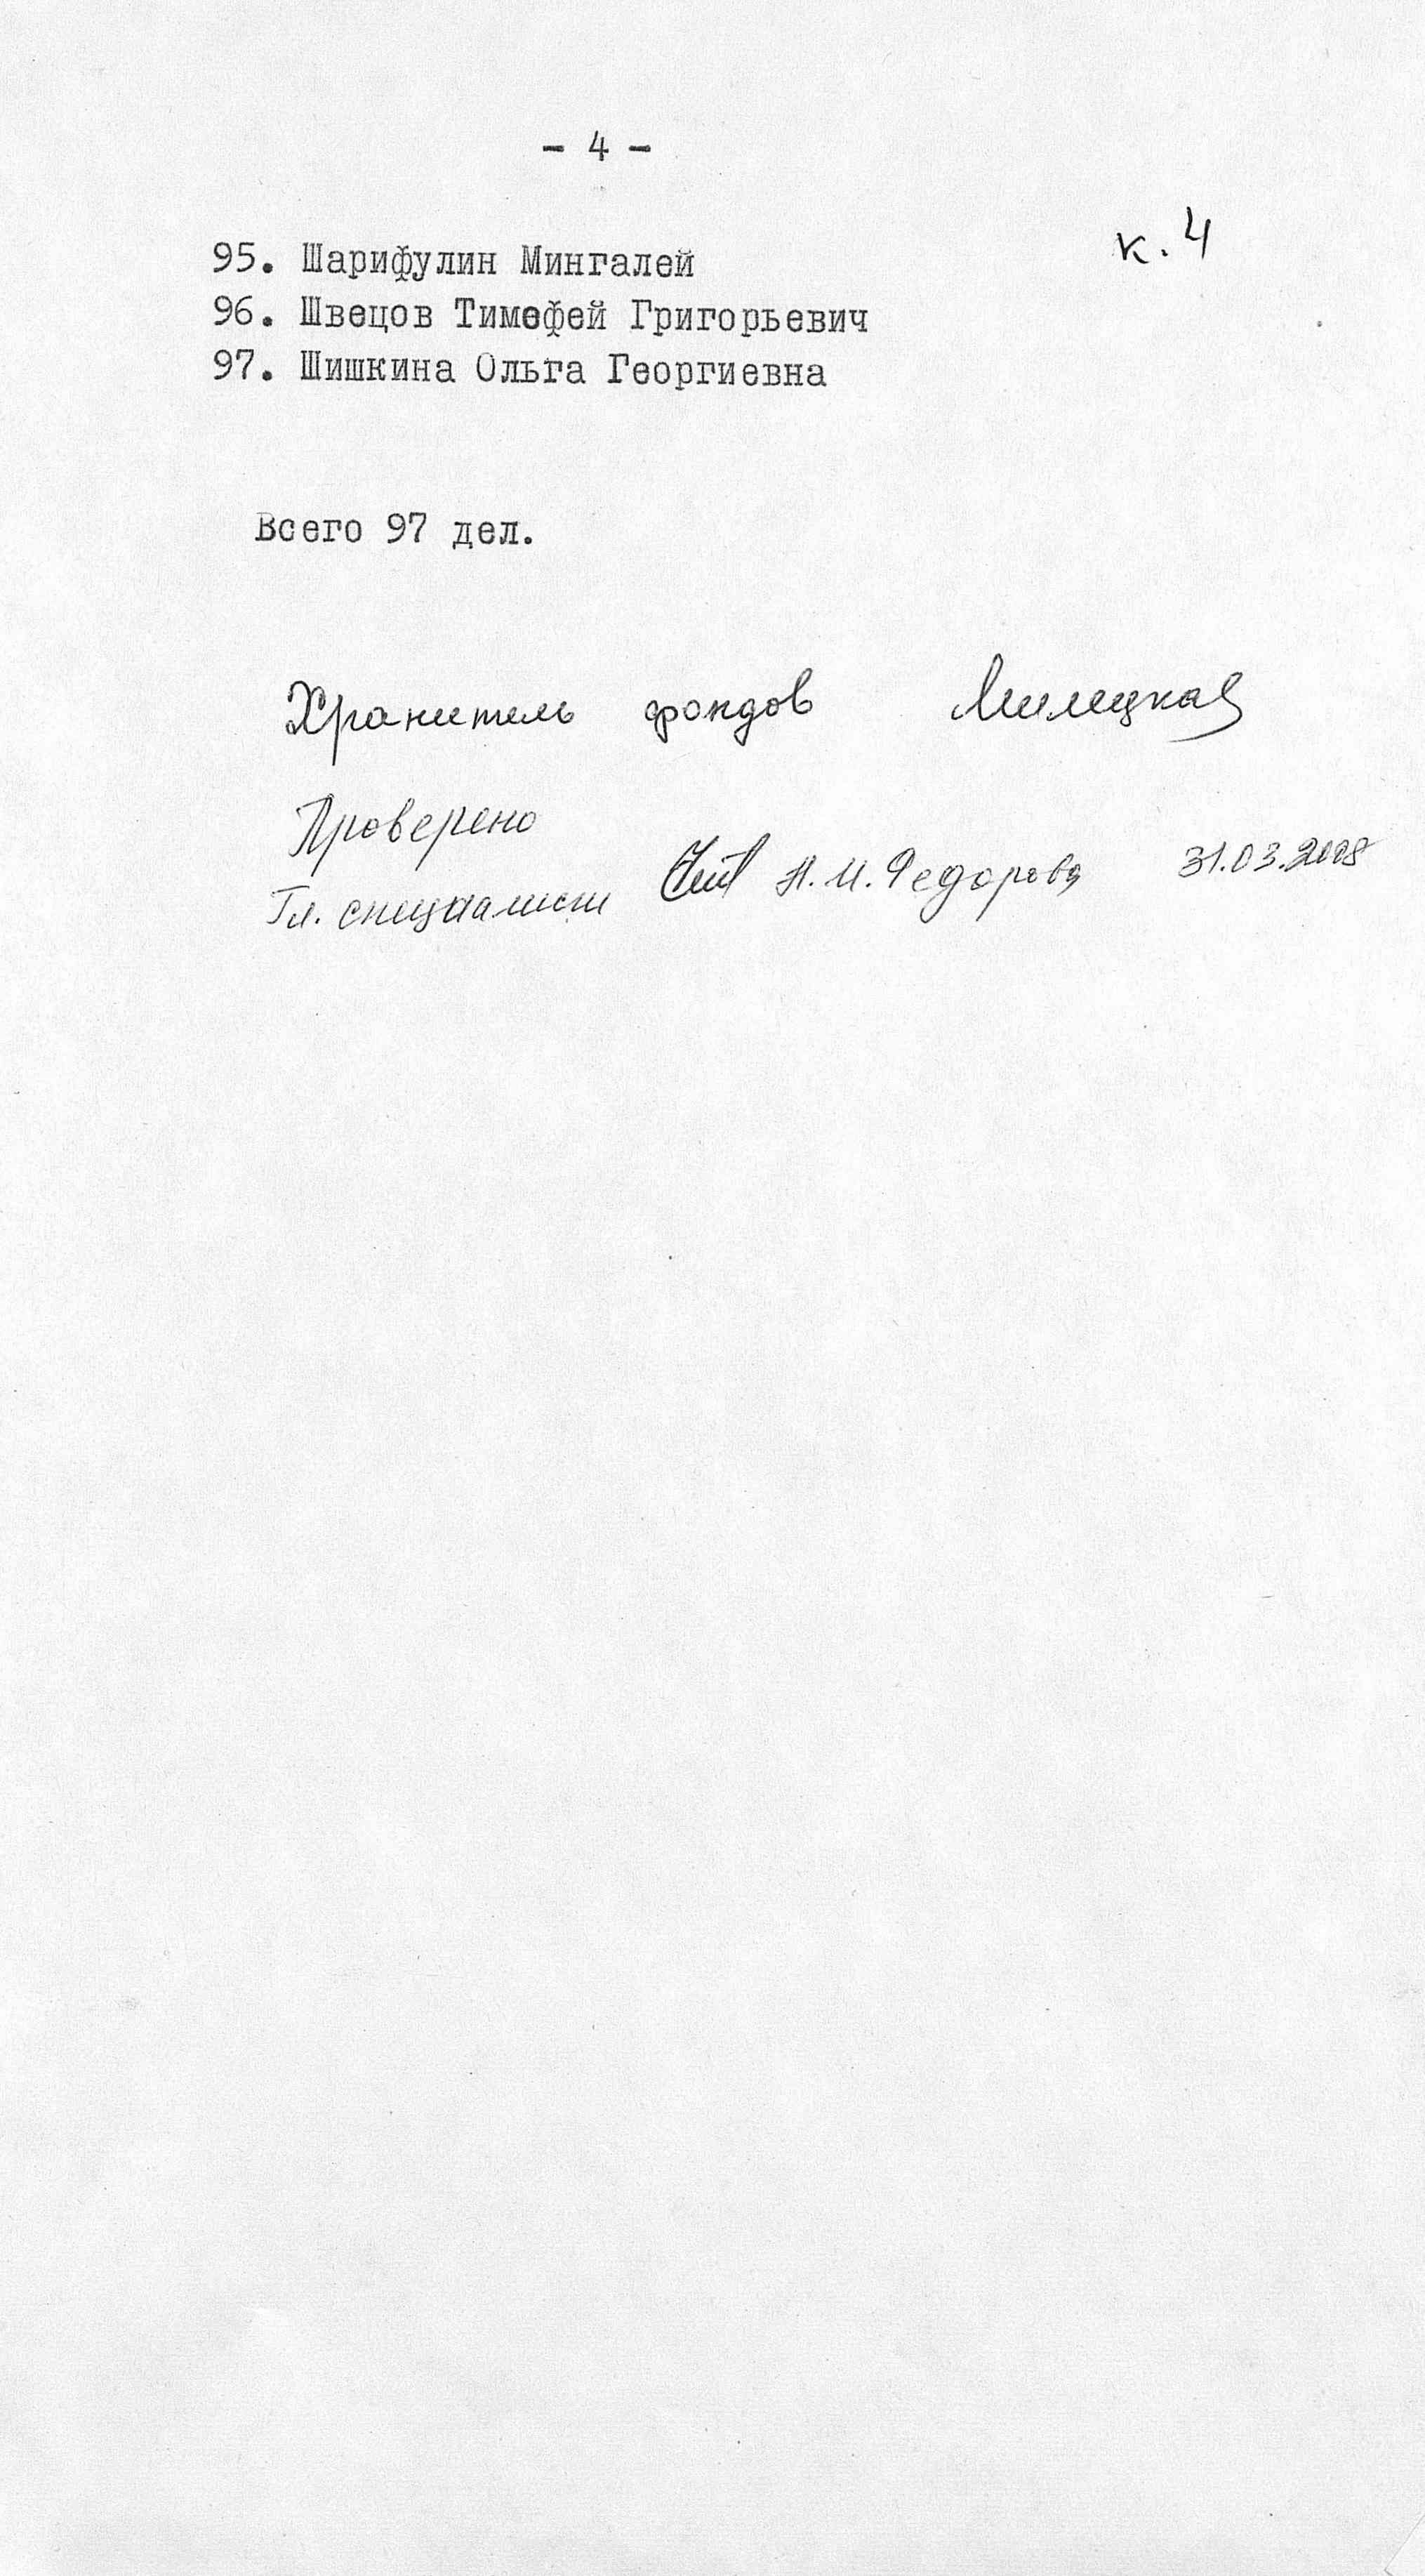 - 4 -
к. 4
95. Шарифулин Мингалей
96. Швецов Тимофей Григорьевич
97. Шишкина Ольга Георгиевна
Всего 97 дел.
Хранитель фондов
Проверено
Гл. специалист Н. И. Федорова 31.03.2008